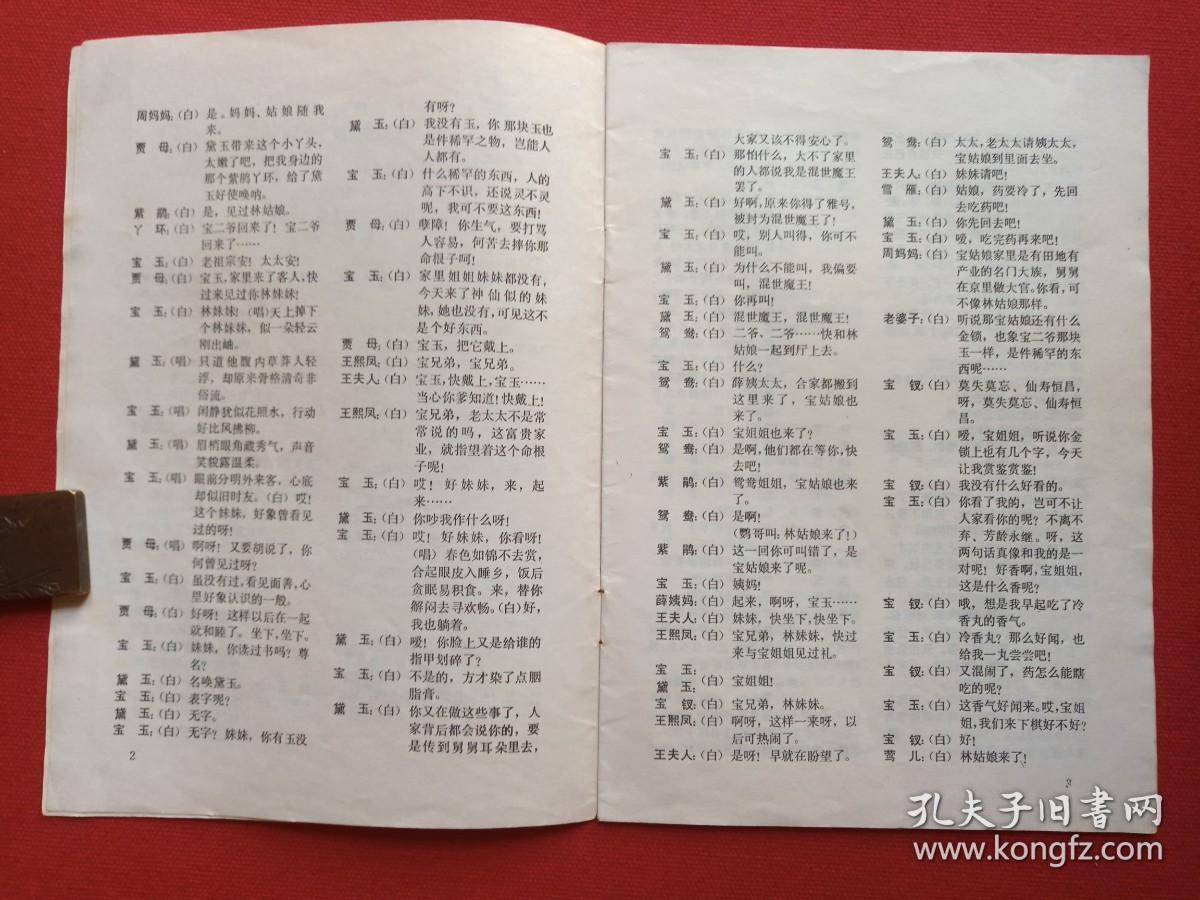 周妈妈：（白）是。妈妈、姑娘随我
来。
贾　母：（白）黛玉带来这个小丫头，
太嫩了吧，把我身边的
那个紫鹃丫环，给了黛
玉好使唤呐。
紫　鹃：（白）是，见过林姑娘。
丫　环：（白）宝二爷回来了！宝二爷
回来了……
宝　玉：（白）老祖宗安！太太安！
贾　母：（白）宝玉，家里来了客人，快
过来见过你林妹妹！
宝　玉：（白）林妹妹！（唱）天上掉下
个林妹妹，似一朵轻云
刚出岫。
黛　玉：（唱）只道他腹内草莽人轻
浮，却原来骨格清奇非
俗流。
宝　玉：（唱）闲静犹似花照水，行动
好比风拂柳。
黛　玉：（唱）眉梢眼角藏秀气，声音
笑貌露温柔。
宝　玉：（唱）眼前分明外来客，心底
却似旧时友。（白）哎！
这个妹妹，好象曾看见
过的呀！
贾　母：（唱）啊呀！又要胡说了，你
何曾见过呀？
宝　玉：（白）虽没有过，看见面善，心
里好象认识的一般。
贾　母：（白）好呀！这样以后在一起
就和睦了。坐下，坐下。
宝　玉：（白）妹妹，你读过书吗？尊
名？
黛　玉：（白）名唤黛玉。
宝　玉：（白）表字呢？
黛　玉：（白）无字。
宝　玉：（白）无字？妹妹，你有玉没
有呀？
黛　玉：（白）我没有玉，你那块玉也
是件稀罕之物，岂能人
人都有。
宝　玉：（白）什么稀罕的东西，人的
高下不识，还说灵不灵
呢，我可不要这东西！
贾　母：（白）孽障！你生气，要打骂
人容易，何苦去摔你那
命根子呵！
宝　玉：（白）家里姐姐妹妹都没有，
今天来了神仙似的妹
妹，她也没有，可见这不
是个好东西。
贾　母：（白）宝玉，把它戴上。
王熙凤：（白）宝兄弟，宝兄弟。
王夫人：（白）宝玉，快戴上，宝玉……
当心你爹知道！快戴上！
王熙凤：（白）宝兄弟，老太太不是常
常说的吗，这富贵家
业，就指望着这个命根
子呢！
宝　玉：（白）哎！好妹妹，来，起
来……
黛　玉：（白）你吵我作什么呀！
宝　玉：（白）哎！好妹妹，你看呀！
（唱）春色如锦不去赏，
合起眼皮入睡乡，饭后
贪眠易积食。来，替你
解闷去寻欢畅。（白）好，
我也躺着。
黛　玉：（白）嗳！你脸上又是给谁的
指甲划碎了？
宝　玉：（白）不是的，方才染了点胭
脂膏。
黛　玉：（白）你又在做这些事了，人
家背后都会说你的，要
是传到舅舅耳朵里去，
2
大家又该不得安心了。
宝　玉：（白）那怕什么，大不了家里
的人都说我是混世魔王
罢了。
黛　玉：（白）好啊，原来你得了雅号，
被封为混世魔王了！
宝　玉：（白）哎，别人叫得，你可不
能叫。
黛　玉：（白）为什么不能叫，我偏要
叫，混世魔王！
宝　玉：（白）你再叫！
黛　玉：（白）混世魔王，混世魔王！
鸳　鸯：（白）二爷、二爷……快和林
姑娘一起到厅上去。
宝　玉：（白）什么？
鸳　鸯：（白）薛姨太太，合家都搬到
这里来了，宝姑娘也
来了。
宝　玉：（白）宝姐姐也来了？
鸳　鸯：（白）是啊，他们都在等你，快
去吧！
紫　鹃：（白）鸳鸯姐姐，宝姑娘也来
了。
鸳　鸯：（白）是啊！
（鹦哥叫：林姑娘来了！）
紫　鹃：（白）这一回你可叫错了，是
宝姑娘来了呢。
宝　玉：（白）姨妈！
薛姨妈：（白）起来，啊呀，宝玉……
王夫人：（白）妹妹，快坐下，快坐下。
王熙凤：（白）宝兄弟，林妹妹，快过
来与宝姐姐见过礼。
宝　玉：
黛　玉：（白）宝姐姐！
宝　钗：（白）宝兄弟，林妹妹。
王熙凤：（白）啊呀，这样一来呀，以
后可热闹了。
王夫人：（白）是呀！早就在盼望了。
鸳　鸯：（白）太太，老太太请姨太太，
宝姑娘到里面去坐。
王夫人：（白）妹妹请吧！
雪　雁：（白）姑娘，药要冷了，先回
去吃药吧！
黛　玉：（白）你先回去吧！
宝　玉：（白）嗳，吃完药再来吧！
周妈妈：（白）宝姑娘家里是有田地有
产业的名门大族，舅舅
在京里做大官。你看，可
不像林姑娘那样。
老婆子：（白）听说那宝姑娘还有什么
金锁，也象宝二爷那块
玉一样，是件稀罕的东
西呢……
宝　钗：（白）莫失莫忘、仙寿恒昌，
呀，莫失莫忘、仙寿恒
昌。
宝　玉：（白）嗳，宝姐姐，听说你金
锁上也有几个字，今天
让我赏鉴赏鉴！
宝　钗：（白）我没有什么好看的。
宝　玉：（白）你看了我的，岂可不让
人家看你的呢？不离不
弃、芳龄永继。呀，这
两句话真像和我的是一
对呢！好香啊，宝姐姐，
这是什么香呢？
宝　钗：（白）哦，想是我早起吃了冷
香丸的香气。
宝　玉：（白）冷香丸？那么好闻，也
给我一丸尝尝吧！
宝　钗：（白）又混闹了，药怎么能瞎
吃的呢？
宝　玉：（白）这香气好闻来。哎，宝姐
姐，我们来下棋好不好？
宝　钗：（白）好！
莺　儿：（白）林姑娘来了！
3
孔夫子旧书网
www.kongfz.com